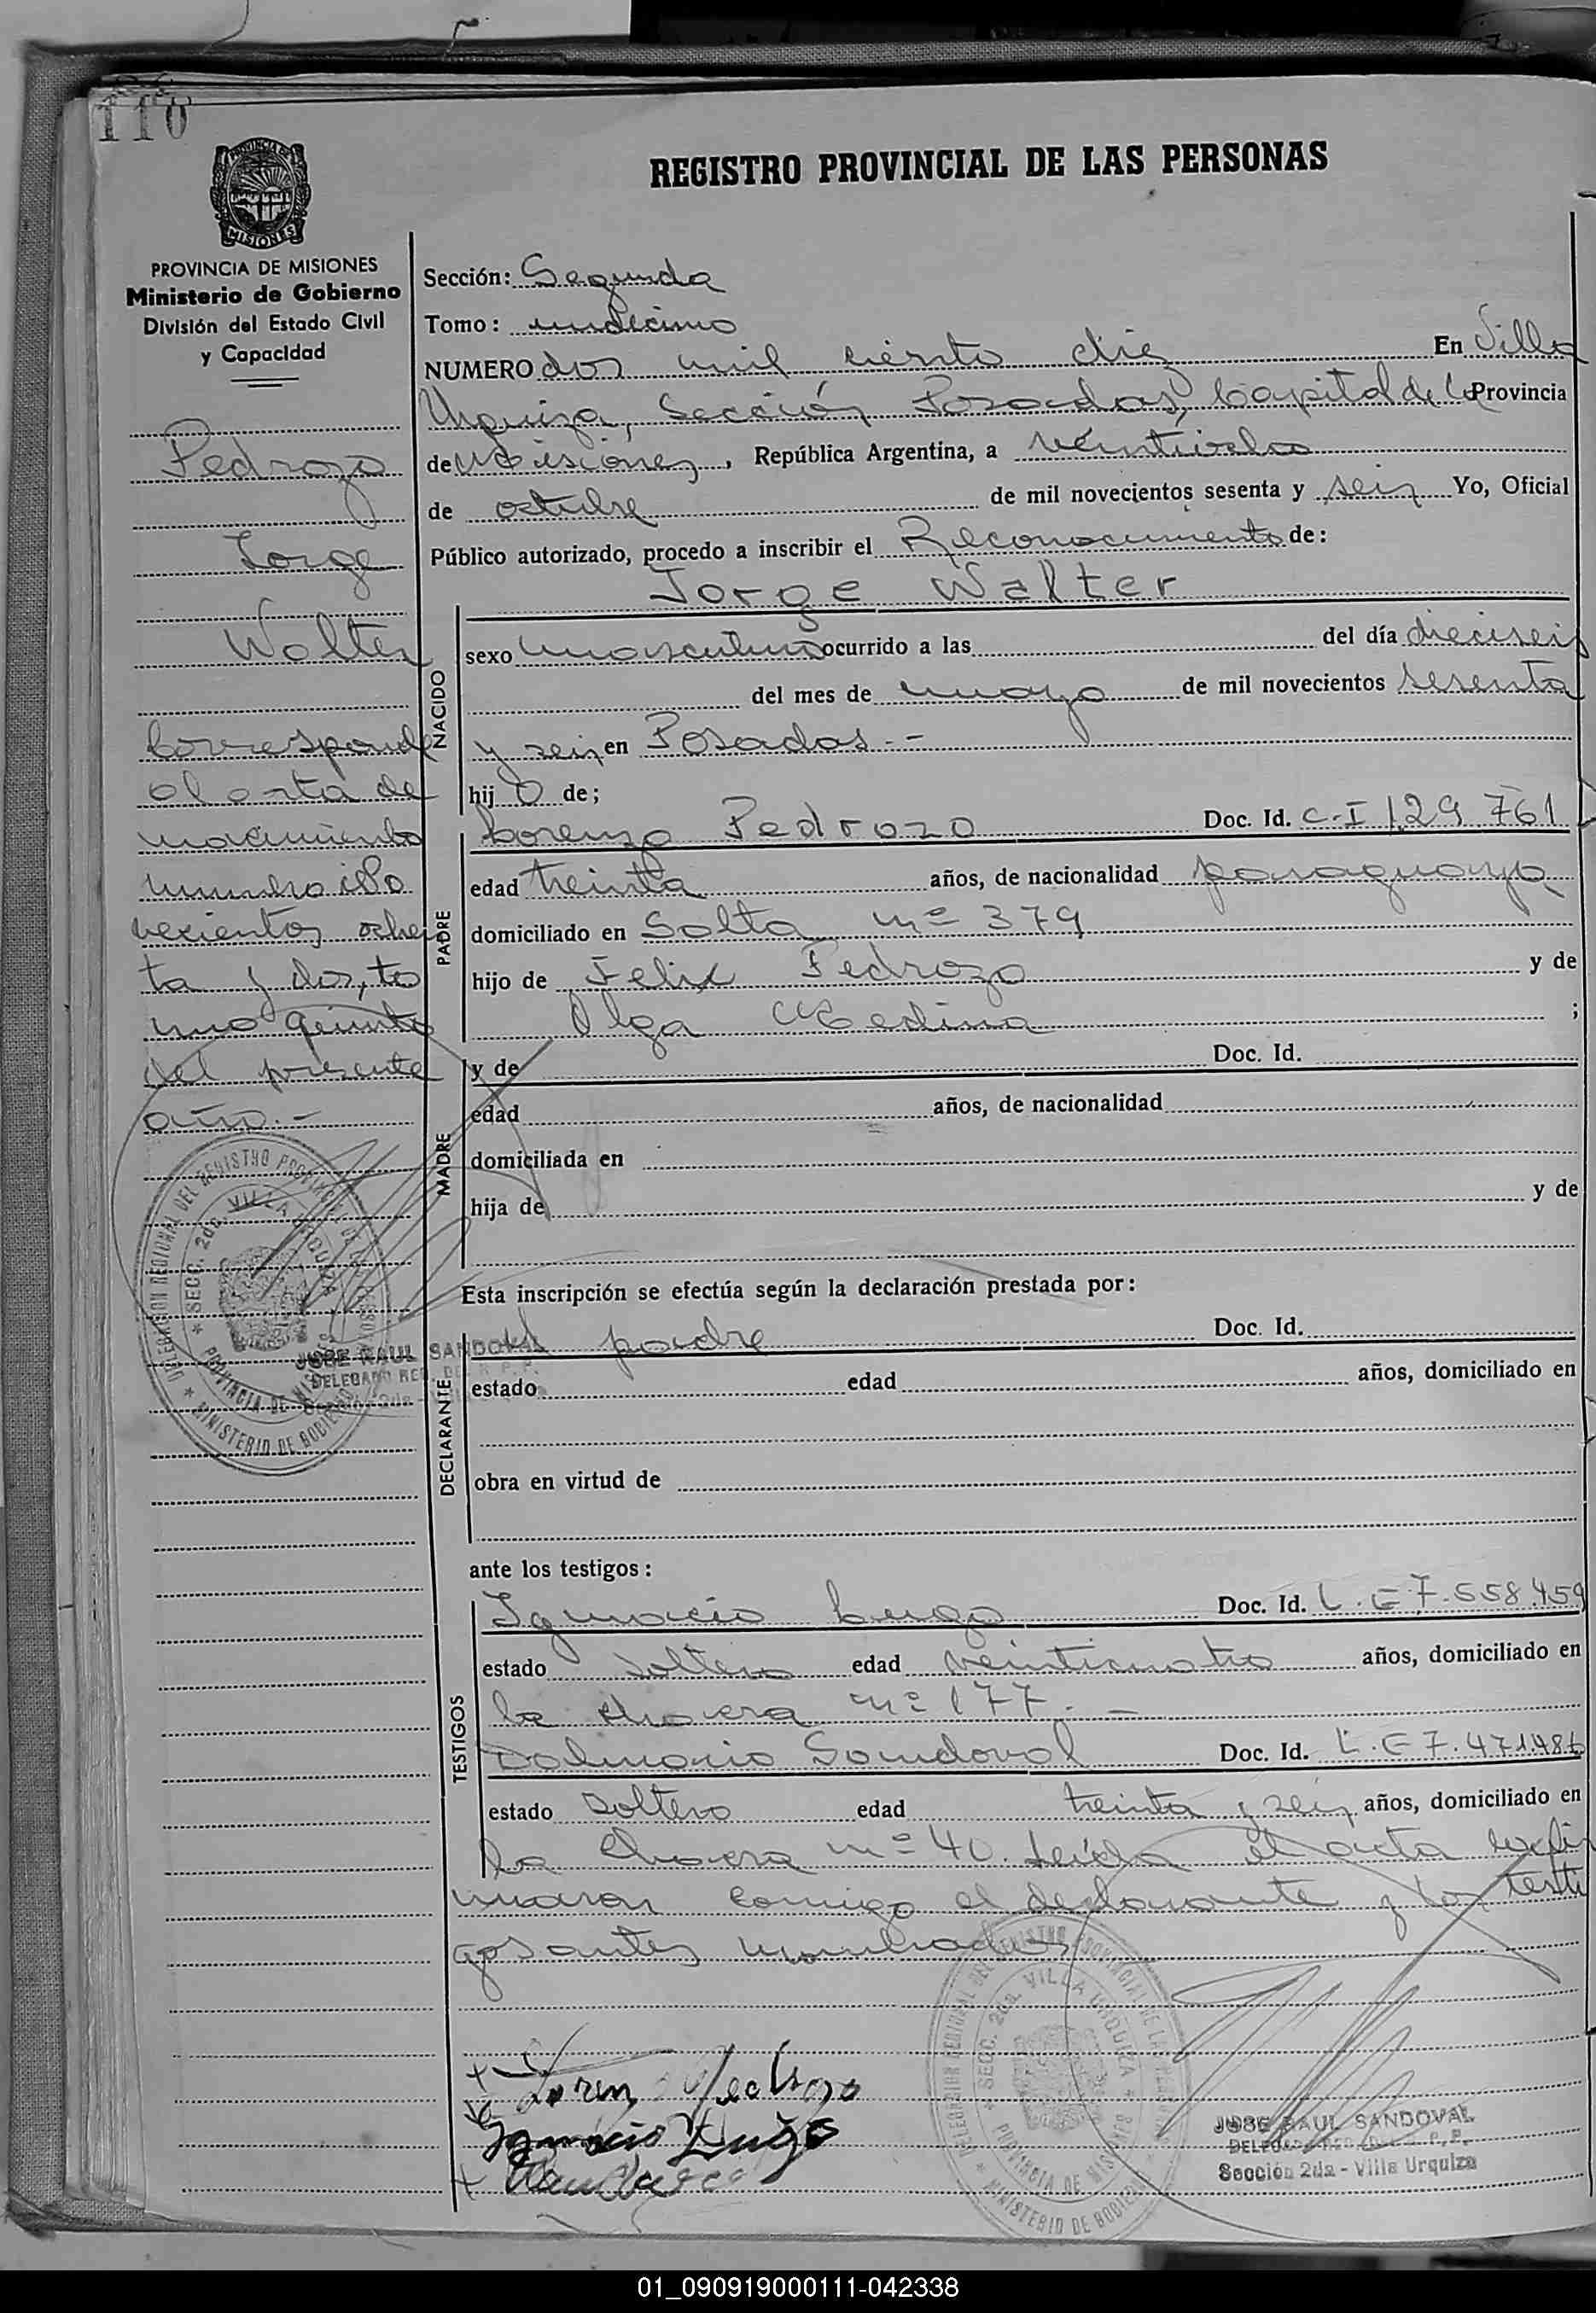 110
REGISTRO PROVINCIAL DE LAS PERSONAS
PROVINCIA DE MISIONES
Ministerio de Gobierno
División del Estado Civil
y Capacidad
Pedrozo
Jorge
Walter
Corresponde
al acta de
nacimiento
numero
ochen
ta y dos, to
mo quinto
del presente
año.-
Sección: Segunda
Tomo: undecimo
NUMERO dos mil ciento diez En Villa
Urquiza, Sección Posadas, Capital de la Provincia
de Misiones, República Argentina, a
de octubre de mil novecientos sesenta y seis Yo, Oficial
Público autorizado, procedo a inscribir el Reconocimiento de:
Jorge Walter
NACIDO
sexo masculino ocurrido a las del día dieciseis
del mes de mayo de mil novecientos sesenta
y seis en Posadas.--
hijo de;
PADRE
Lorenzo Pedrozo Doc. Id. C.I 129.761
edad treinta años, de nacionalidad paraguaya
domiciliado en Salta nº 379
hijo de Felix Pedrozo y de
Olga Medina ;
MADRE
y de Doc. Id.
edad años, de nacionalidad
domiciliada en
hija de y de
Esta inscripción se efectúa según la declaración prestada por:
DECLARANTE
el padre Doc. Id.
estado edad años, domiciliado en
obra en virtud de
ante los testigos:
TESTIGOS
Ignacio Lugo Doc. Id. L.E 7.558.459
estado soltero edad veinticuatro años, domiciliado en
la chacra nº 177.-
Dalmacio Sandoval Doc. Id. L.E 7.471.486
estado soltero edad treinta y seis años, domiciliado en
la Chacra nº 40. Leída el acta la fir
maron conmigo el declarante y los testi
gos antes nombrados
Loren Pedrozo
Ignacio Lugo
DELEGACION REGIONAL DEL REGISTRO PROVINCIAL DE LAS PERSONAS
SECC. 2da. VILLA URQUIZA
PROVINCIA DE MISIONES
MINISTERIO DE GOBIERNO
JOSE RAUL SANDOVAL
DELEGADO REG. DEL R. P. P.
JOSE RAUL SANDOVAL
DELEGADO REG. DEL R. P. P.
Sección 2da - Villa Urquiza
01_090919000111-042338